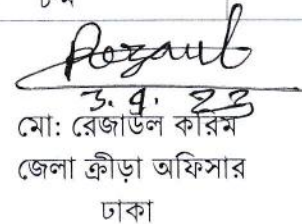 Rezaul
3.9.23
মো: রেজাউল করিম
জেলা ক্রীড়া অফিসার
ঢাকা